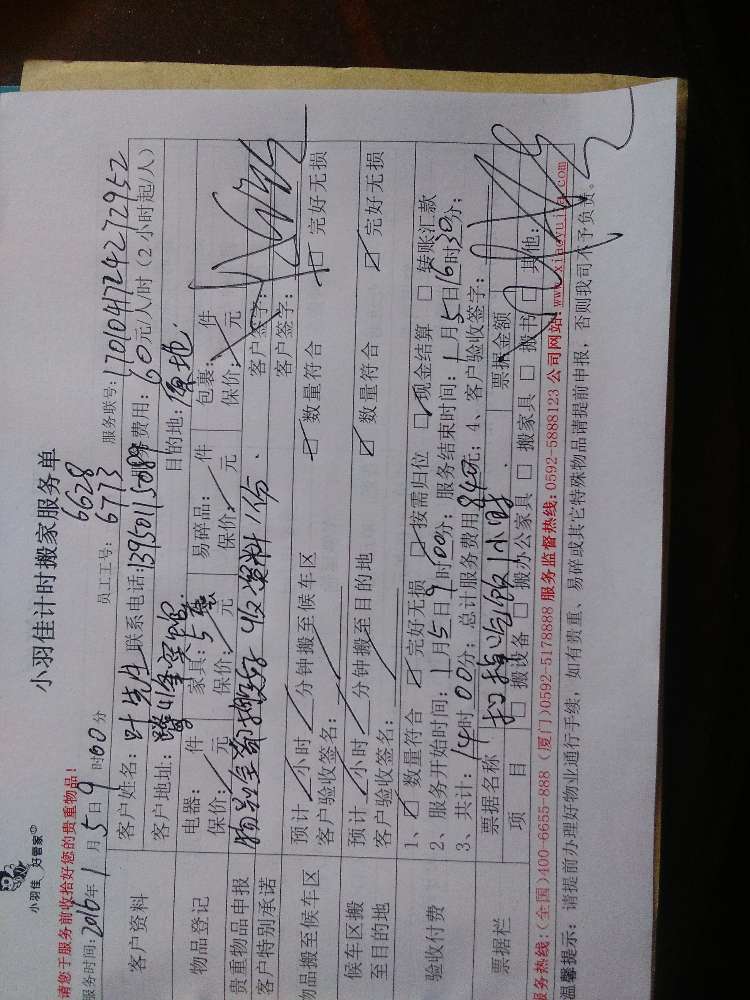 小羽佳 好管家
小羽佳计时搬家服务单
请您于服务前收拾好您的贵重物品!
员工工号: 6628
6773
服务时间: 2016年1月5日9时00分
服务联号: 1701041724272952
客户资料
客户姓名: 叶先生 联系电话: 13950115089 服务费用: 60元/人/时 (2小时起/人)
客户地址: 目的地: 原地.
物品登记
电器: 件 家具: 件 易碎品: 件 包裹: 件
保价: 元 保价: 元 保价: 元 保价: 元
贵重物品申报 客户签字:
客户特别承诺 客户签字:
物品搬至候车区
预计 小时 分钟搬至候车区 ☑ 数量符合 ☑ 完好无损
客户验收签名:
候车区搬至目的地
预计 小时 分钟搬至目的地 ☑ 数量符合 ☑ 完好无损
客户验收签名:
验收付费
1、☑ 数量符合 ☑ 完好无损 ☑ 按需归位 ☑ 现金结算 □ 转账汇款
2、服务开始时间: 1月5日9时00分; 服务结束时间: 1月5日16时30分;
3、共计: 14时00分; 总计服务费用840元; 4、客户验收签字:
票据栏
票据名称 票据金额
项目 □ 搬设备 □ 搬办公家具 □ 搬家具 □ 搬书 □ 其他:
服务热线: (全国)400-6655-888 (厦门)0592-5178888 服务监督热线: 0592-5888123 公司网站: www.xiaoyujia.com
温馨提示: 请提前办理好物业通行手续, 如有贵重、易碎或其它特殊物品请提前申报, 否则我司不予负责。